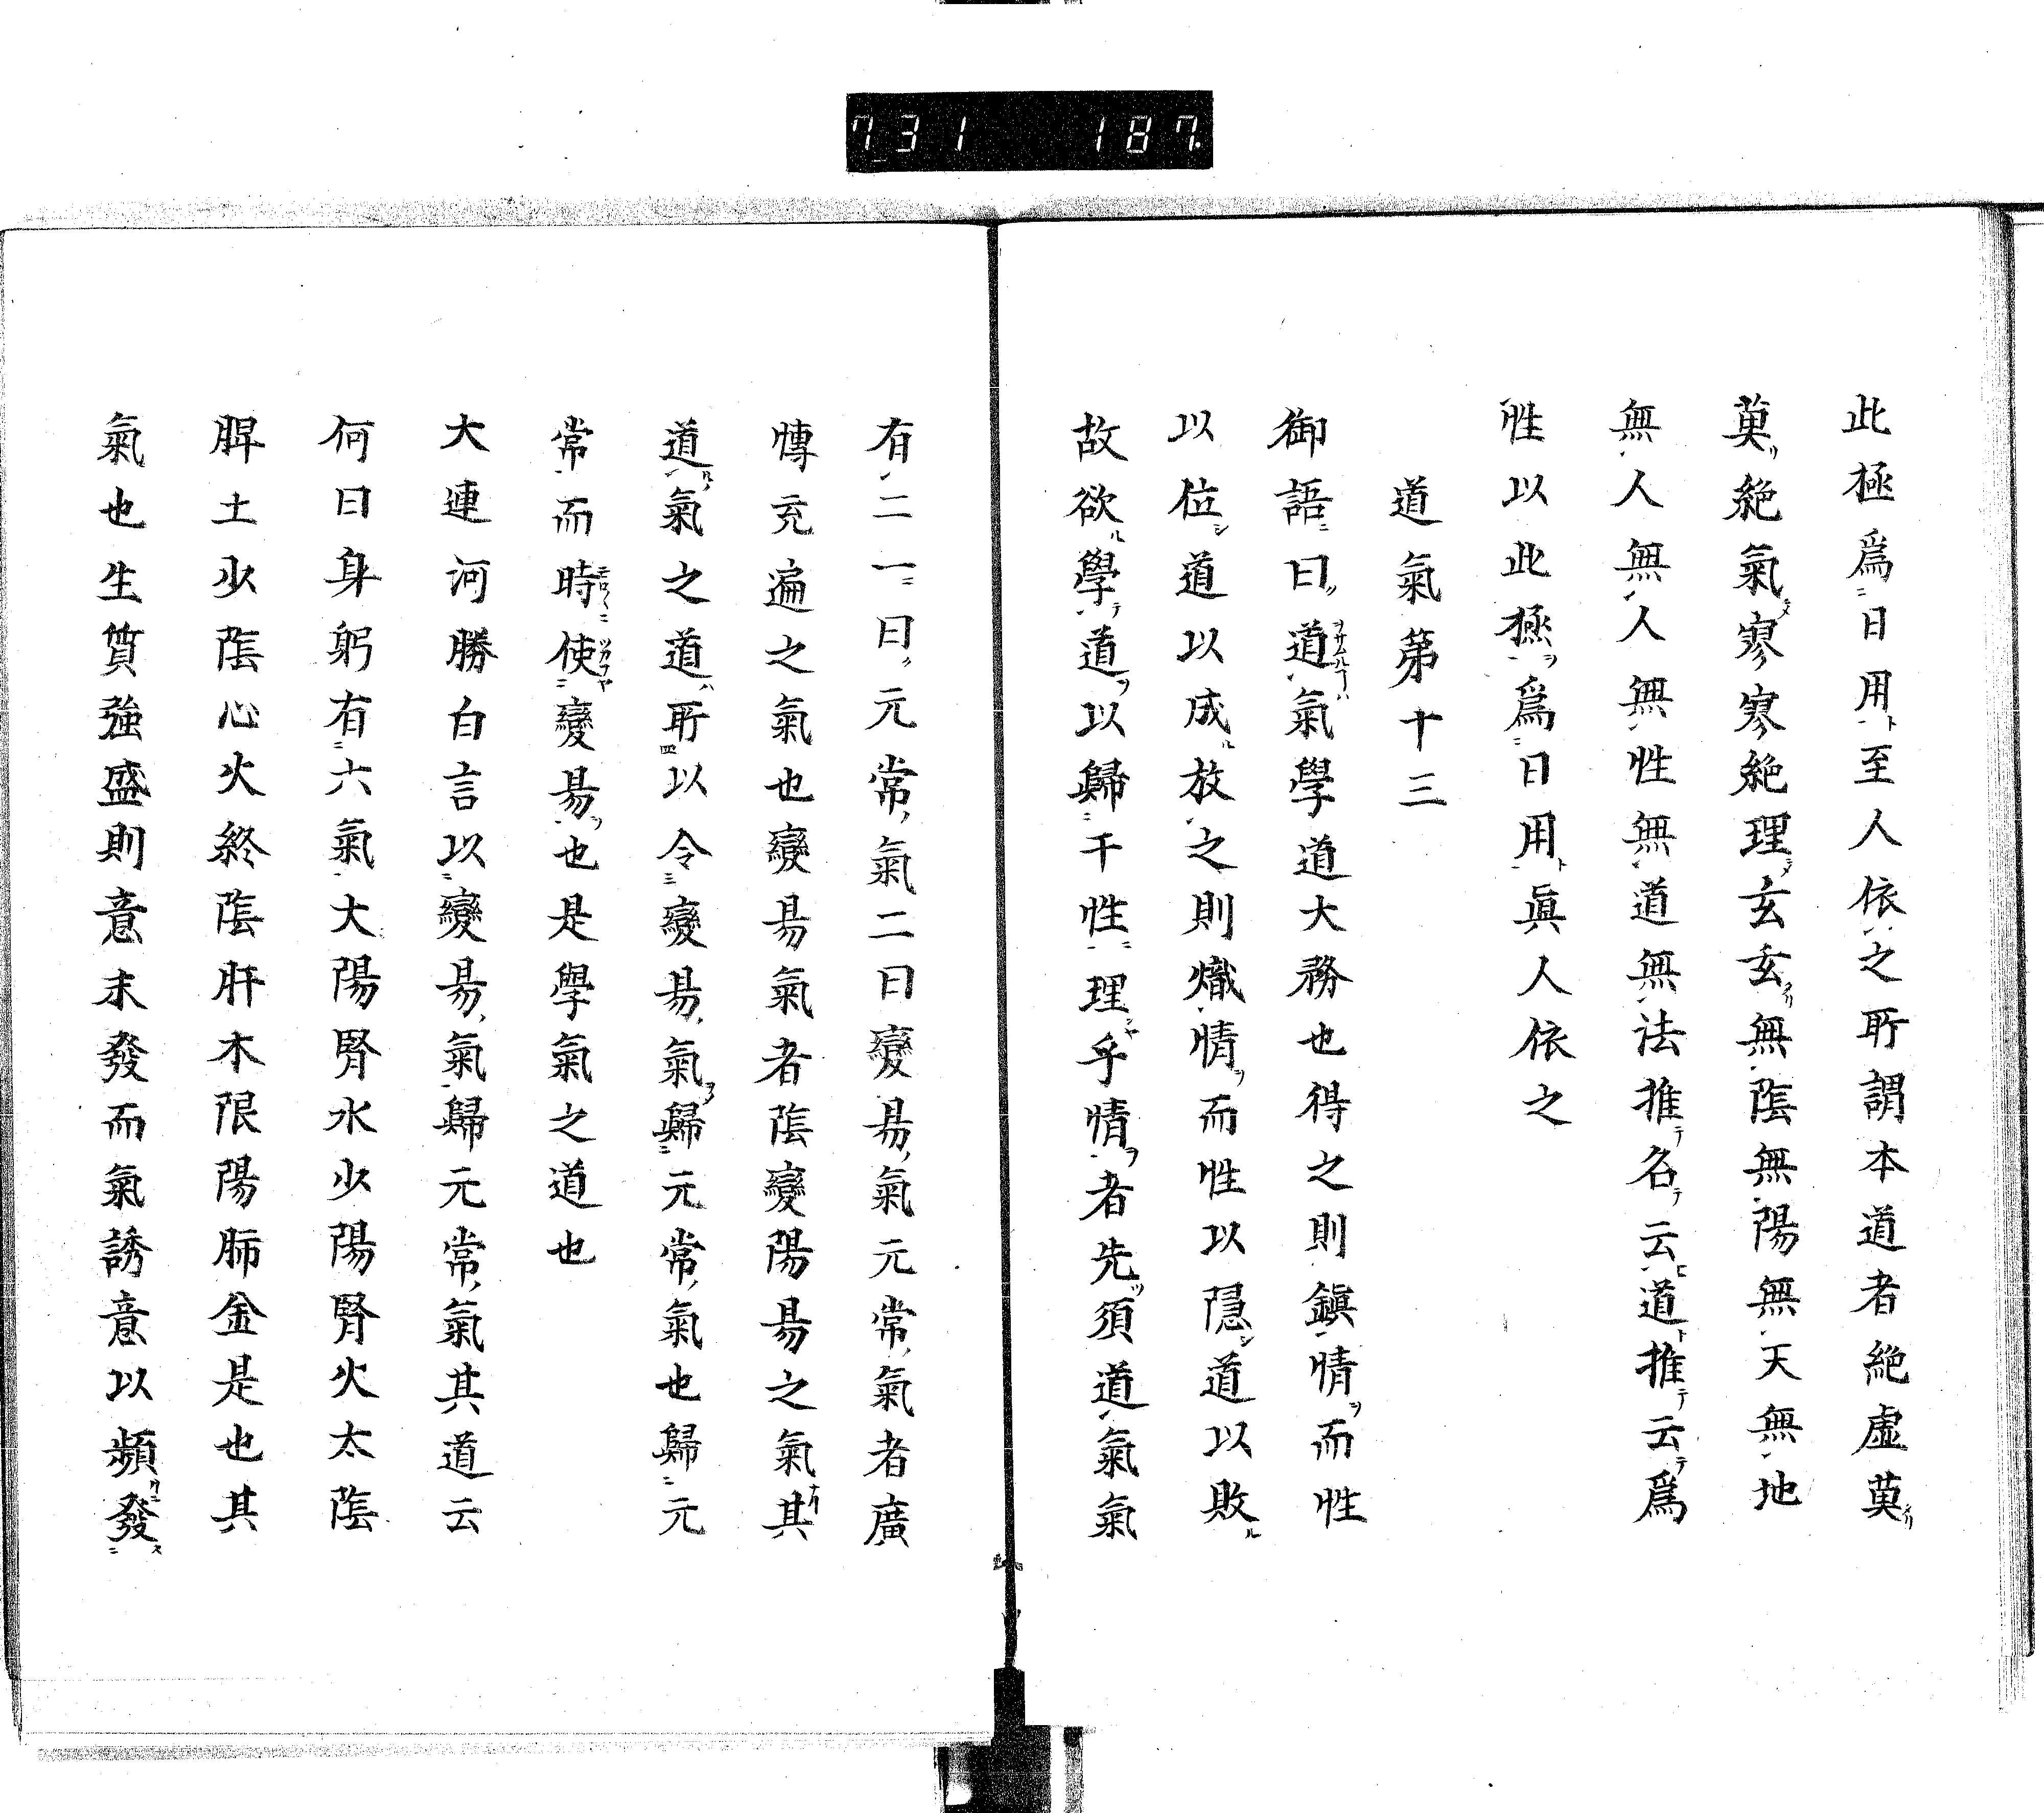 731 187.
此極爲日用至人依之所謂本道者絶虛莫
莫絶氣寥寥絶理玄玄無陰無陽無天無地
無人無人無性無道無法推名云道推云爲
性以此極爲日用眞人依之
道氣第十三
御語曰道氣學道大務也得之則鎭情而性
以位道以成放之則熾情而性以隱道以敗
故欲學道以歸于性理乎情者先須道氣氣
有二一曰元常氣二曰變易氣元常氣者廣
博充遍之氣也變易氣者陰變陽易之氣其
道氣之道所以令變易氣歸元常氣也歸元
常而時使變易也是學氣之道也
大連河勝白言以變易氣歸元常氣其道云
何曰身躬有六氣大陽腎水少陽腎火太陰
脾土少陰心火終陰肝木限陽肺金是也其
氣也生質強盛則意未發而氣誘意以頻發